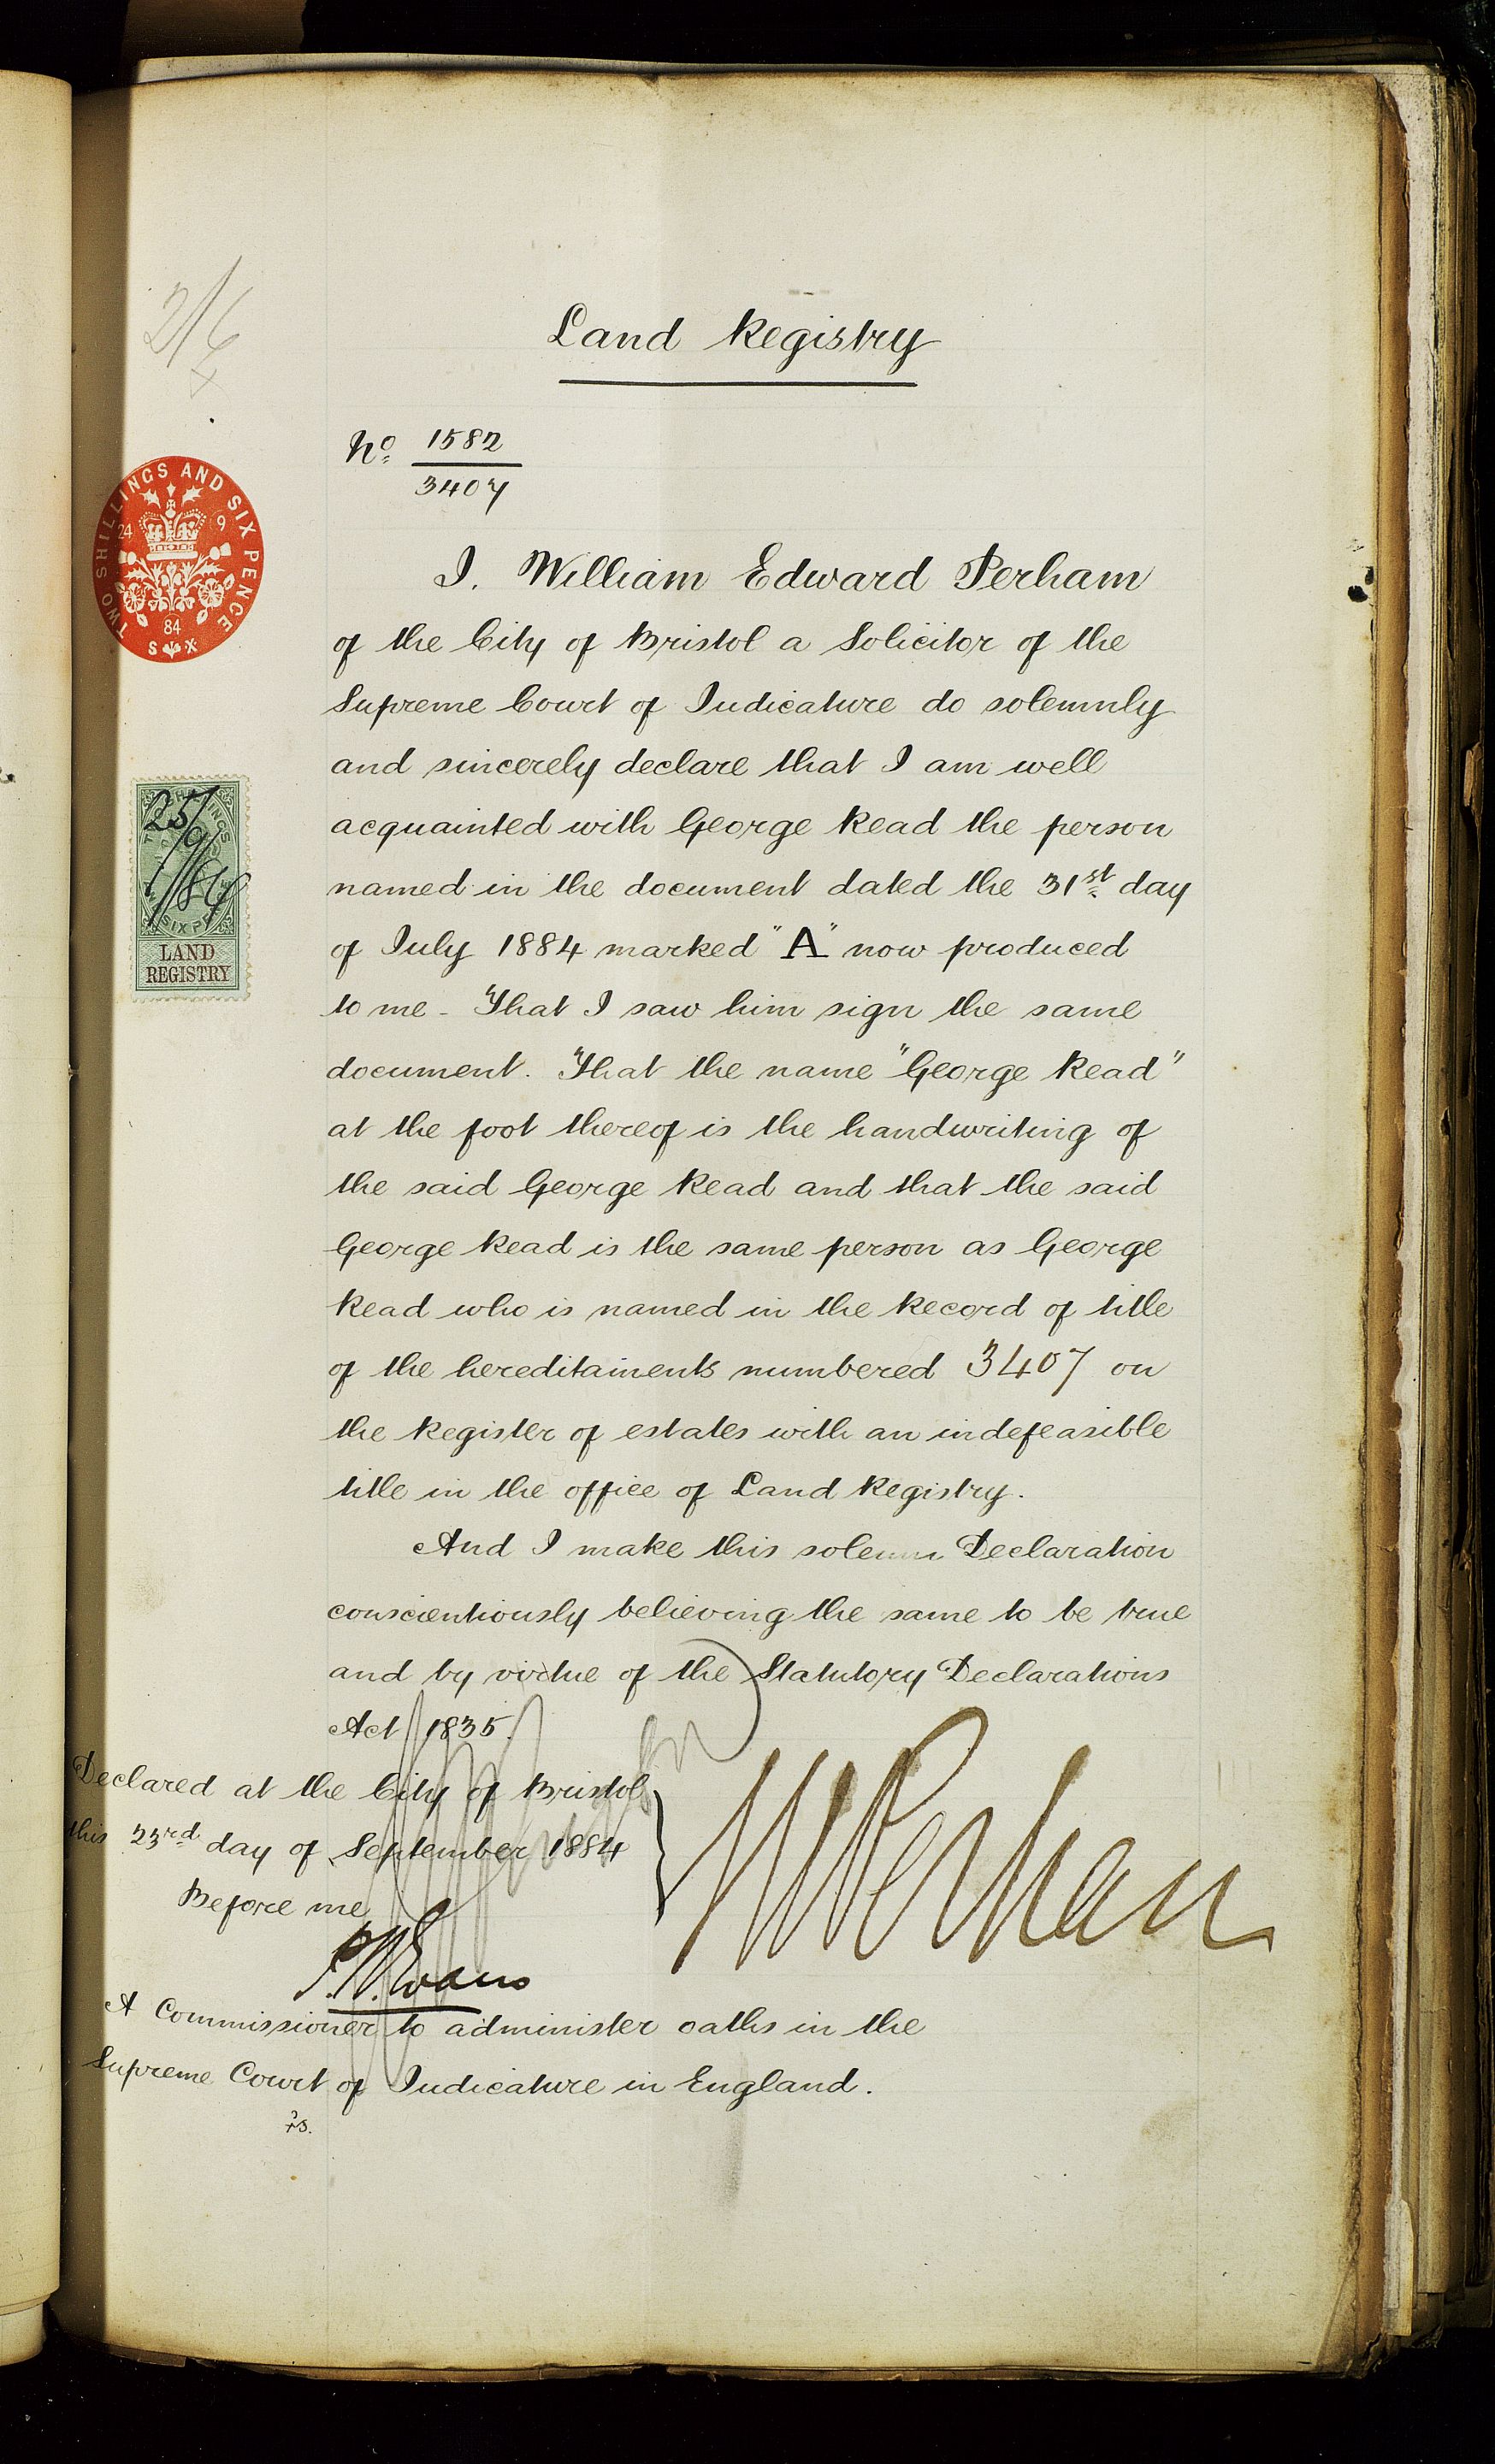 2/6
Land Registry
No. 1582
3407
TWO SHILLINGS AND SIX PENCE
24 9
84
I. William Edward Perham
of the City of Bristol a Solicitor of the
Supreme Court of Judicature do solemnly
and sincerely declare that I am well
acquainted with George Read the person
named in the document dated the 31st day
of July 1884 marked "A" now produced
to me - That I saw him sign the same
document. That the name "George Read"
at the foot thereof is the handwriting of
the said George Read and that the said
George Read is the same person as George
Read who is named in the Record of title
of the hereditaments numbered 3407 on
the Register of estates with an indefeasible
title in the office of Land Registry.
And I make this solemn Declaration
conscientiously believing the same to be true
and by virtue of the Statutory Declarations
Act 1835.
25/9/84
LAND
REGISTRY
Declared at the City of Bristol
this 23rd day of September 1884
Before me
W Perham
A Commissioner to administer oaths in the
Supreme Court of Judicature in England.